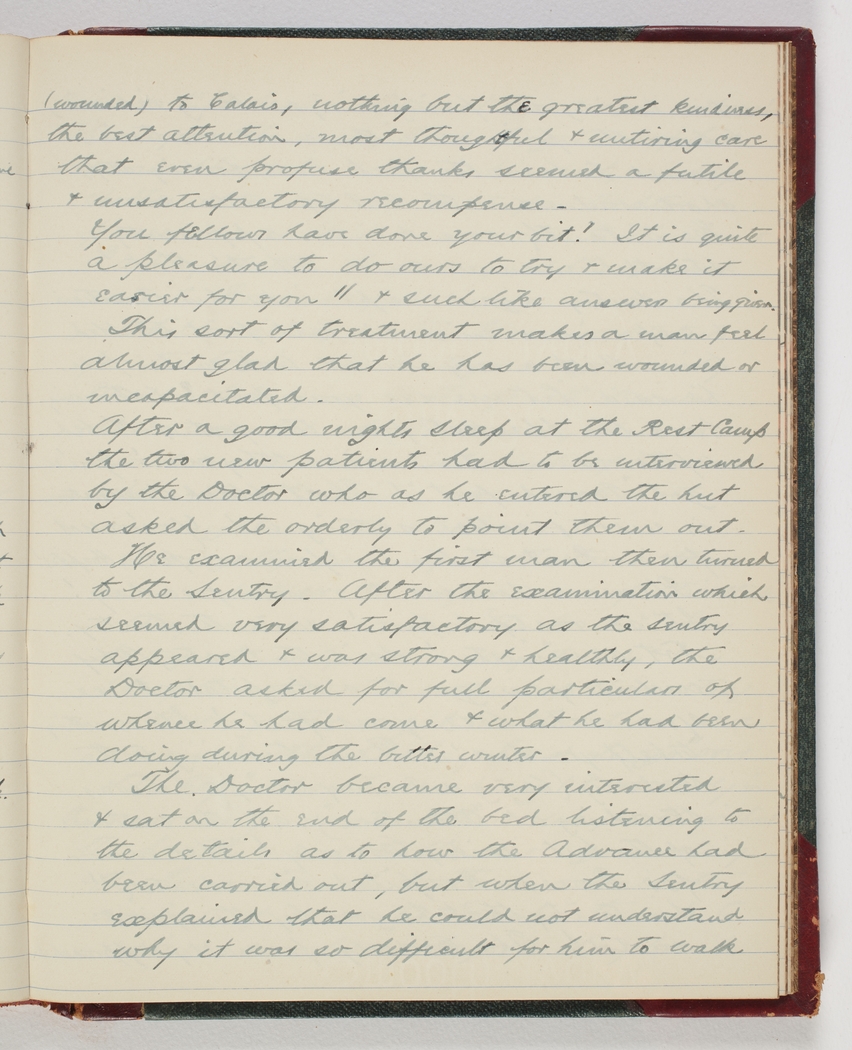 (wounded) to Calais, nothing but the greatest kindness,
the best attention, most thoughtful & untiring care
that even profuse thanks seemed a futile
& unsatisfactory recompense -
You fellows have done your bit! It is quite
a pleasure to do ours to try & make it
easier for you " & such like answers being given.
This sort of treatment makes a man feel
almost glad that he has been wounded or
incapacitated.
After a good nights sleep at the Rest Camp
the two new patients had to be interviewed
by the Doctor who as he entered the hut
asked the orderly to point them out.
He examined the first man then turned
to the Sentry. After the examination which
seemed very satisfactory as the sentry
appeared & was strong & healthly, the
Doctor asked for full particulars of
whence he had come & what he had been
doing during the bitter winter.
The Doctor became very interested
& sat on the end of the bed listening to
the details as to how the Advance had
been carried out, but when the Sentry
explained that he could not understand
why it was so difficult for him to walk